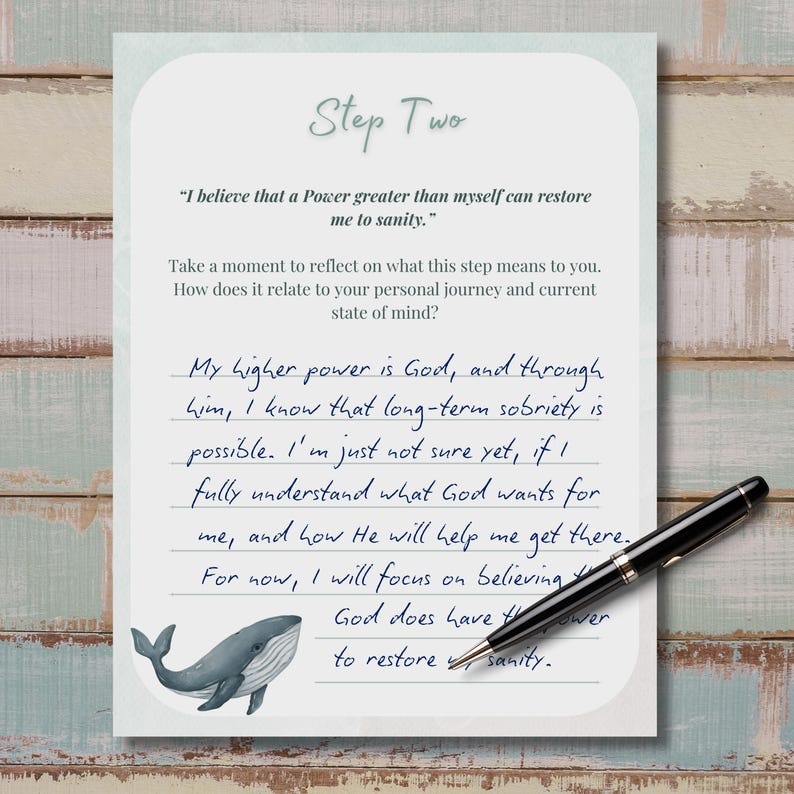 Step Two
“I believe that a Power greater than myself can restore
me to sanity.”
Take a moment to reflect on what this step means to you.
How does it relate to your personal journey and current
state of mind?
My higher power is God, and through
him, I know that long-term sobriety is
possible. I'm just not sure yet, if I
fully understand what God wants for
me, and how He will help me get there.
For now, I will focus on believing
God does have
to restore sanity.